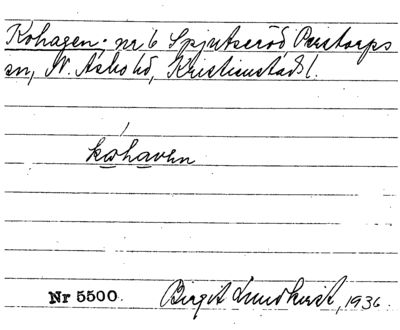 Kohagen. nr 6 Spjutseröd, Perstorps
sn, N. Åsbo hd, Kristianstads l.
kohaven
Nr 5500. Birgit Lundkvist, 1936